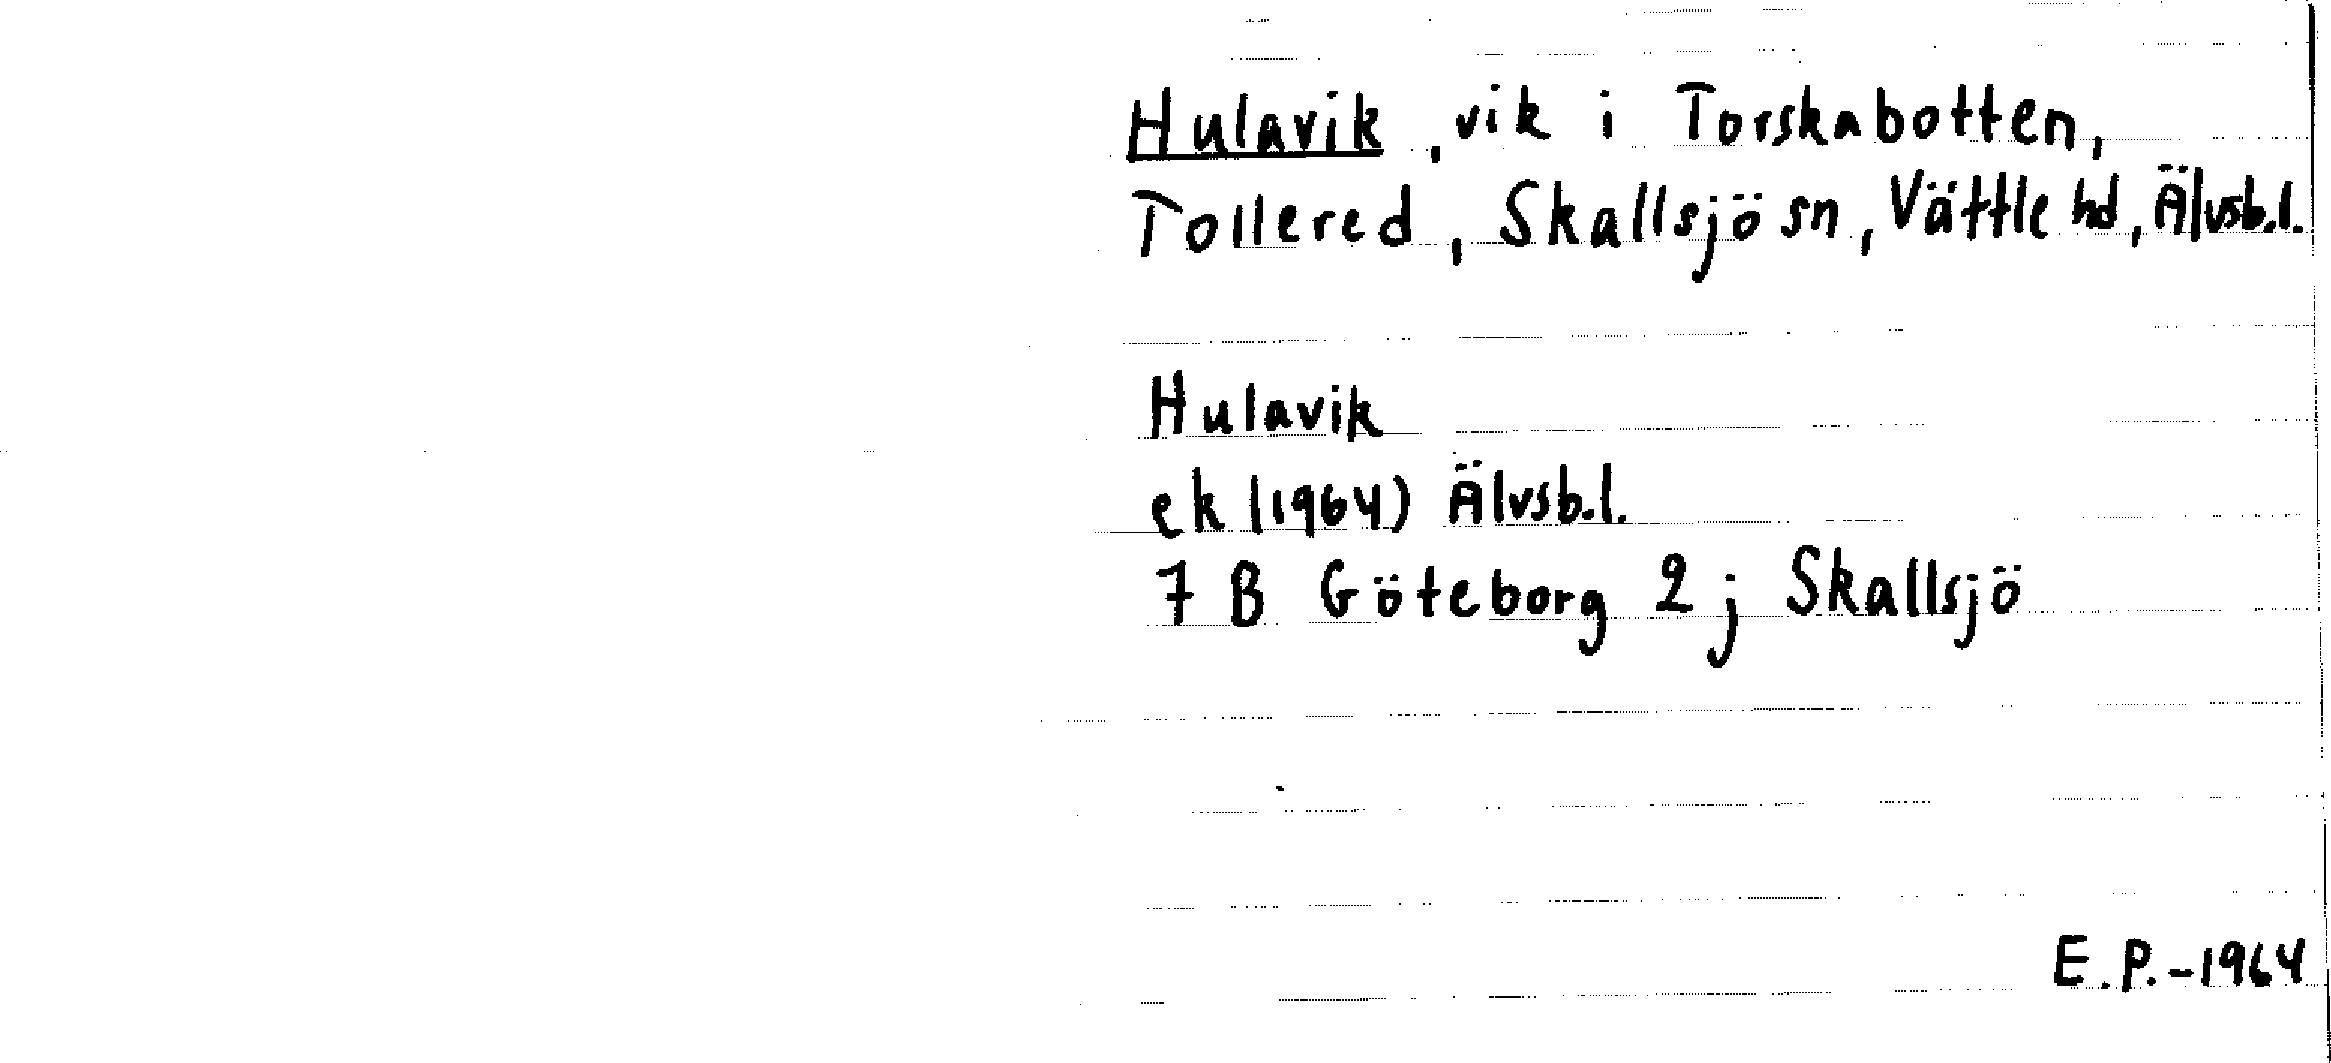 Hulavik, vik i Torskabotten,
Tollered, Skallsjö sn, Vättle hd, Älvsb.l.
Hulavik
ek (1964) Älvsb.l.
7 B Göteborg 2 j Skallsjö
E.P.-1964